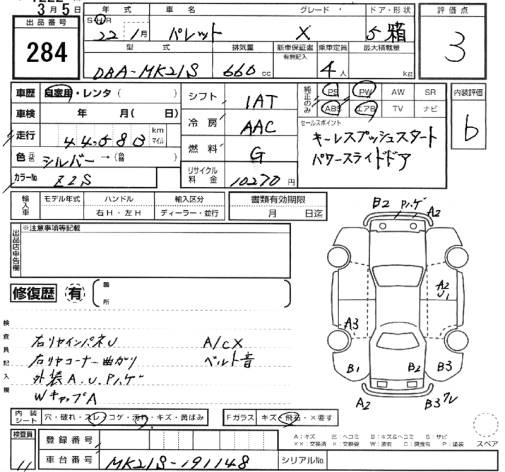 3月5日
出品番号
284
年式 車名 グレード ドア・形状 評価点
S・H 22年1月 パレット X 5 箱 3
型式 排気量 新車保証書 有無記入 乗車定員 最大積載量
DBA-MK21S 660cc 4人 kg
車歴 自家用・レンタ( )
車検 年 月( 日)
走行 44,580 km マイル
色 シルバー→
カラーNo ZZS
シフト 1AT
冷房 AAC
燃料 G
リサイクル料金 10270円
純正のみ PS PW AW SR
ABS エアB TV ナビ
セールスポイント
キーレスプッシュスタート
パワースライドドア
内装評価
b
輸入車 モデル年式 ハンドル 輸入区分
右H・左H ディーラー・並行
書類有効期限
月 日迄
出品店申告欄 ※注意事項等記載
修復歴 有 箇所
検査員記入欄
右リヤインパネU A/CX
右リヤコーナー曲がり ベルト音
外装A.U.Pハゲ
WキャプA
B2 Pハゲ A2
A2 U1
A3
B1 B2 B3
A2 B3
内装シート 穴・破れ・スレ・コゲ・汚れ・キズ・黄ばみ
Fガラス キズ・飛石・×要す
A:キズ E:ヘコミ B:キズ&ヘコミ S:サビ
スペア
検査員
登録番号
車台番号 MK21S-191148
シリアルNo.